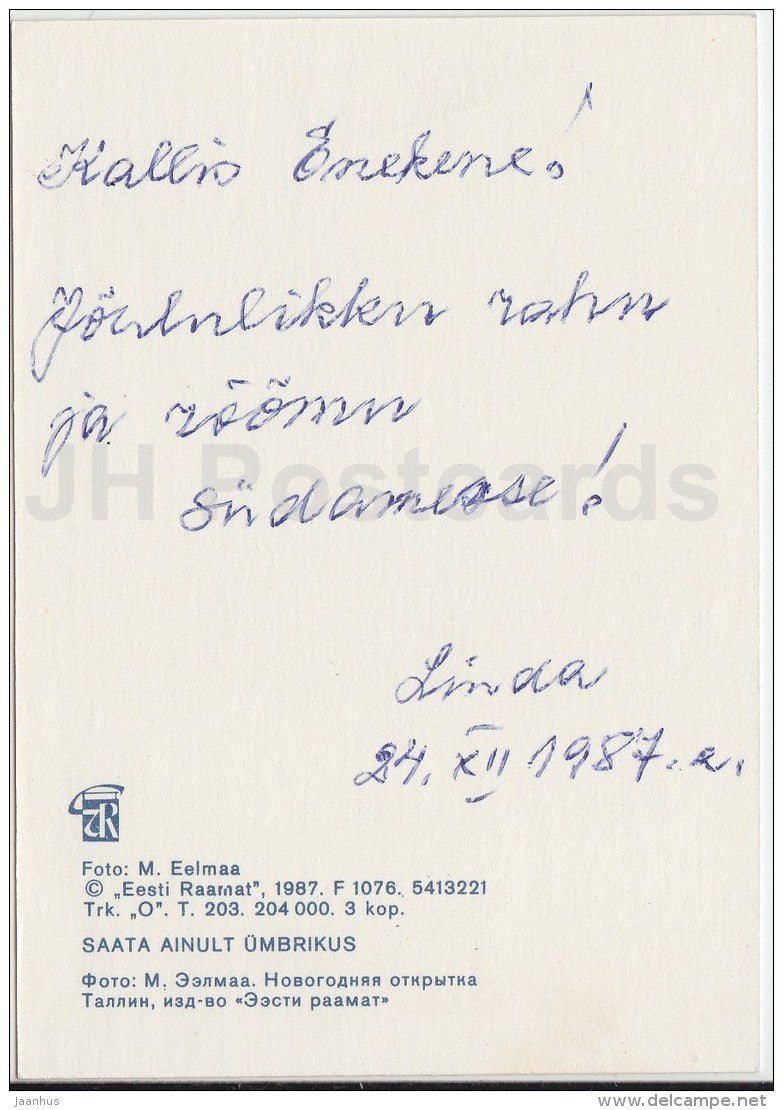 Kallis Enekene!
Jõululikku rahu
ja rõõmu
südamesse!
JH Postcards
Linda
24. XII 1987.a.
ER
Foto: M. Eelmaa
© „Eesti Raamat”, 1987. F 1076. 5413221
Trk. „O”. T. 203. 204 000. 3 kop.
SAATA AINULT ÜMBRIKUS
Фото: М. Ээлмаа. Новогодняя открытка
Таллин, изд-во «Ээсти раамат»
Jaanhus
delcampe.net